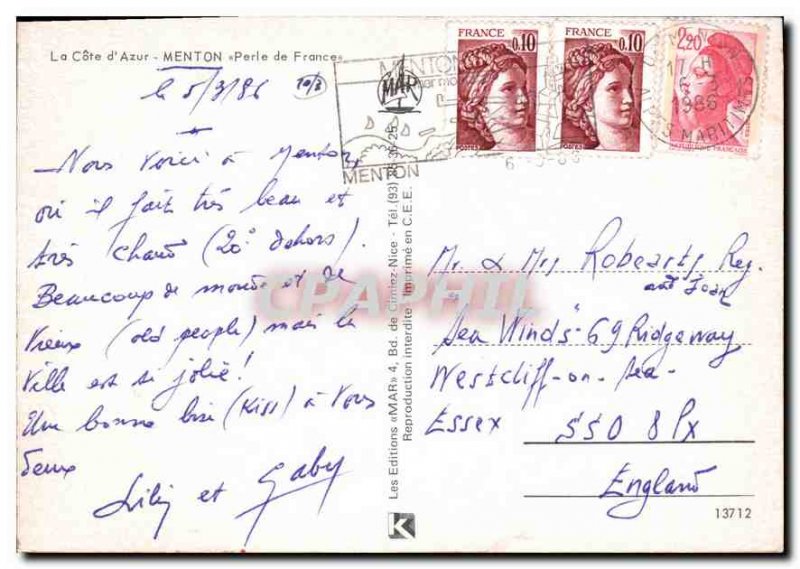 La Côte d'Azur - MENTON «Perle de France»
le 5/3/86
MENTON
MAR
MENTON
FRANCE 0,10
FRANCE 0,10
2,20
1986
MARITIMES
6-3-86
Nous voici à Menton,
où il fait très beau et
très chaud (20° dehors).
Beaucoup de monde et de
Vieux (old people) mais la
Ville est si jolie!
Une bonne bise (Kiss) à Vous
deux
Lily et Gaby
Les Editions «MAR» 4, Bd. de Cimiez-Nice - Tél. (93)
Reproduction interdite - Imprimé en C.E.E.
Mr & Mrs Robearts Reg.
and Joan
"Sea Winds" 69 Ridgeway
Westcliff-on-Sea-
Essex SS0 8PX
England
13712
K
CPAPHIL